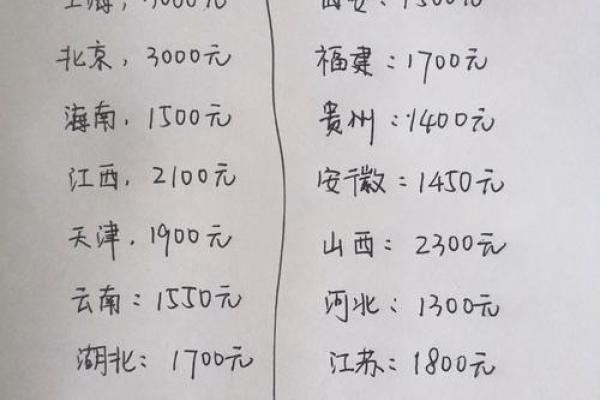 北京，3000元
海南，1500元
江西，2100元
天津，1900元
云南：1550元
湖北：1700元
福建：1700元
贵州：1400元
安徽：1450元
山西：2300元
河北：1300元
江苏：1800元